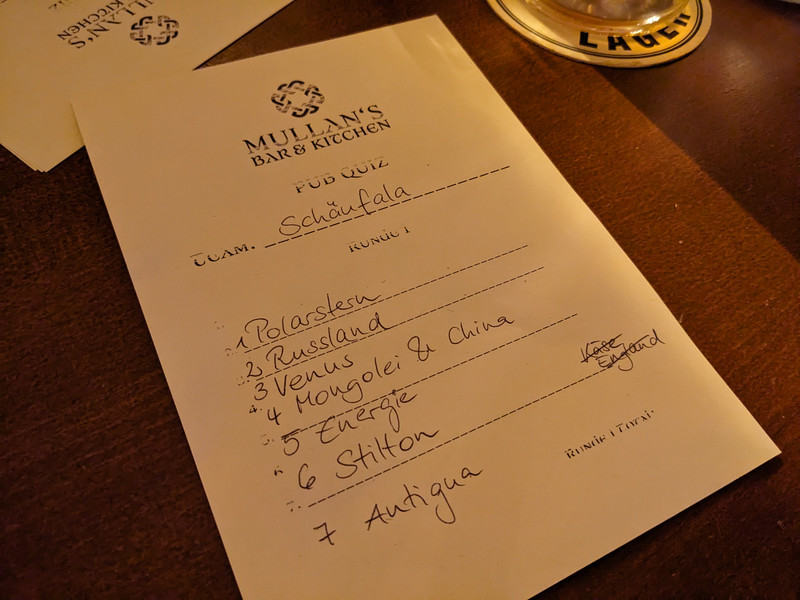 MULLAN'S
KITCHEN
LAGER
MULLAN'S
BAR & KITCHEN
PUB QUIZ
TEAM: Schäufala
RUNDE 1
1 Polarstern
2 Russland
3 Venus
4. 4 Mongolei & China
5. 5 Energie
Käse
England
6 6 Stilton
7. 7 Antigua
RUNDE 1 TOTAL: